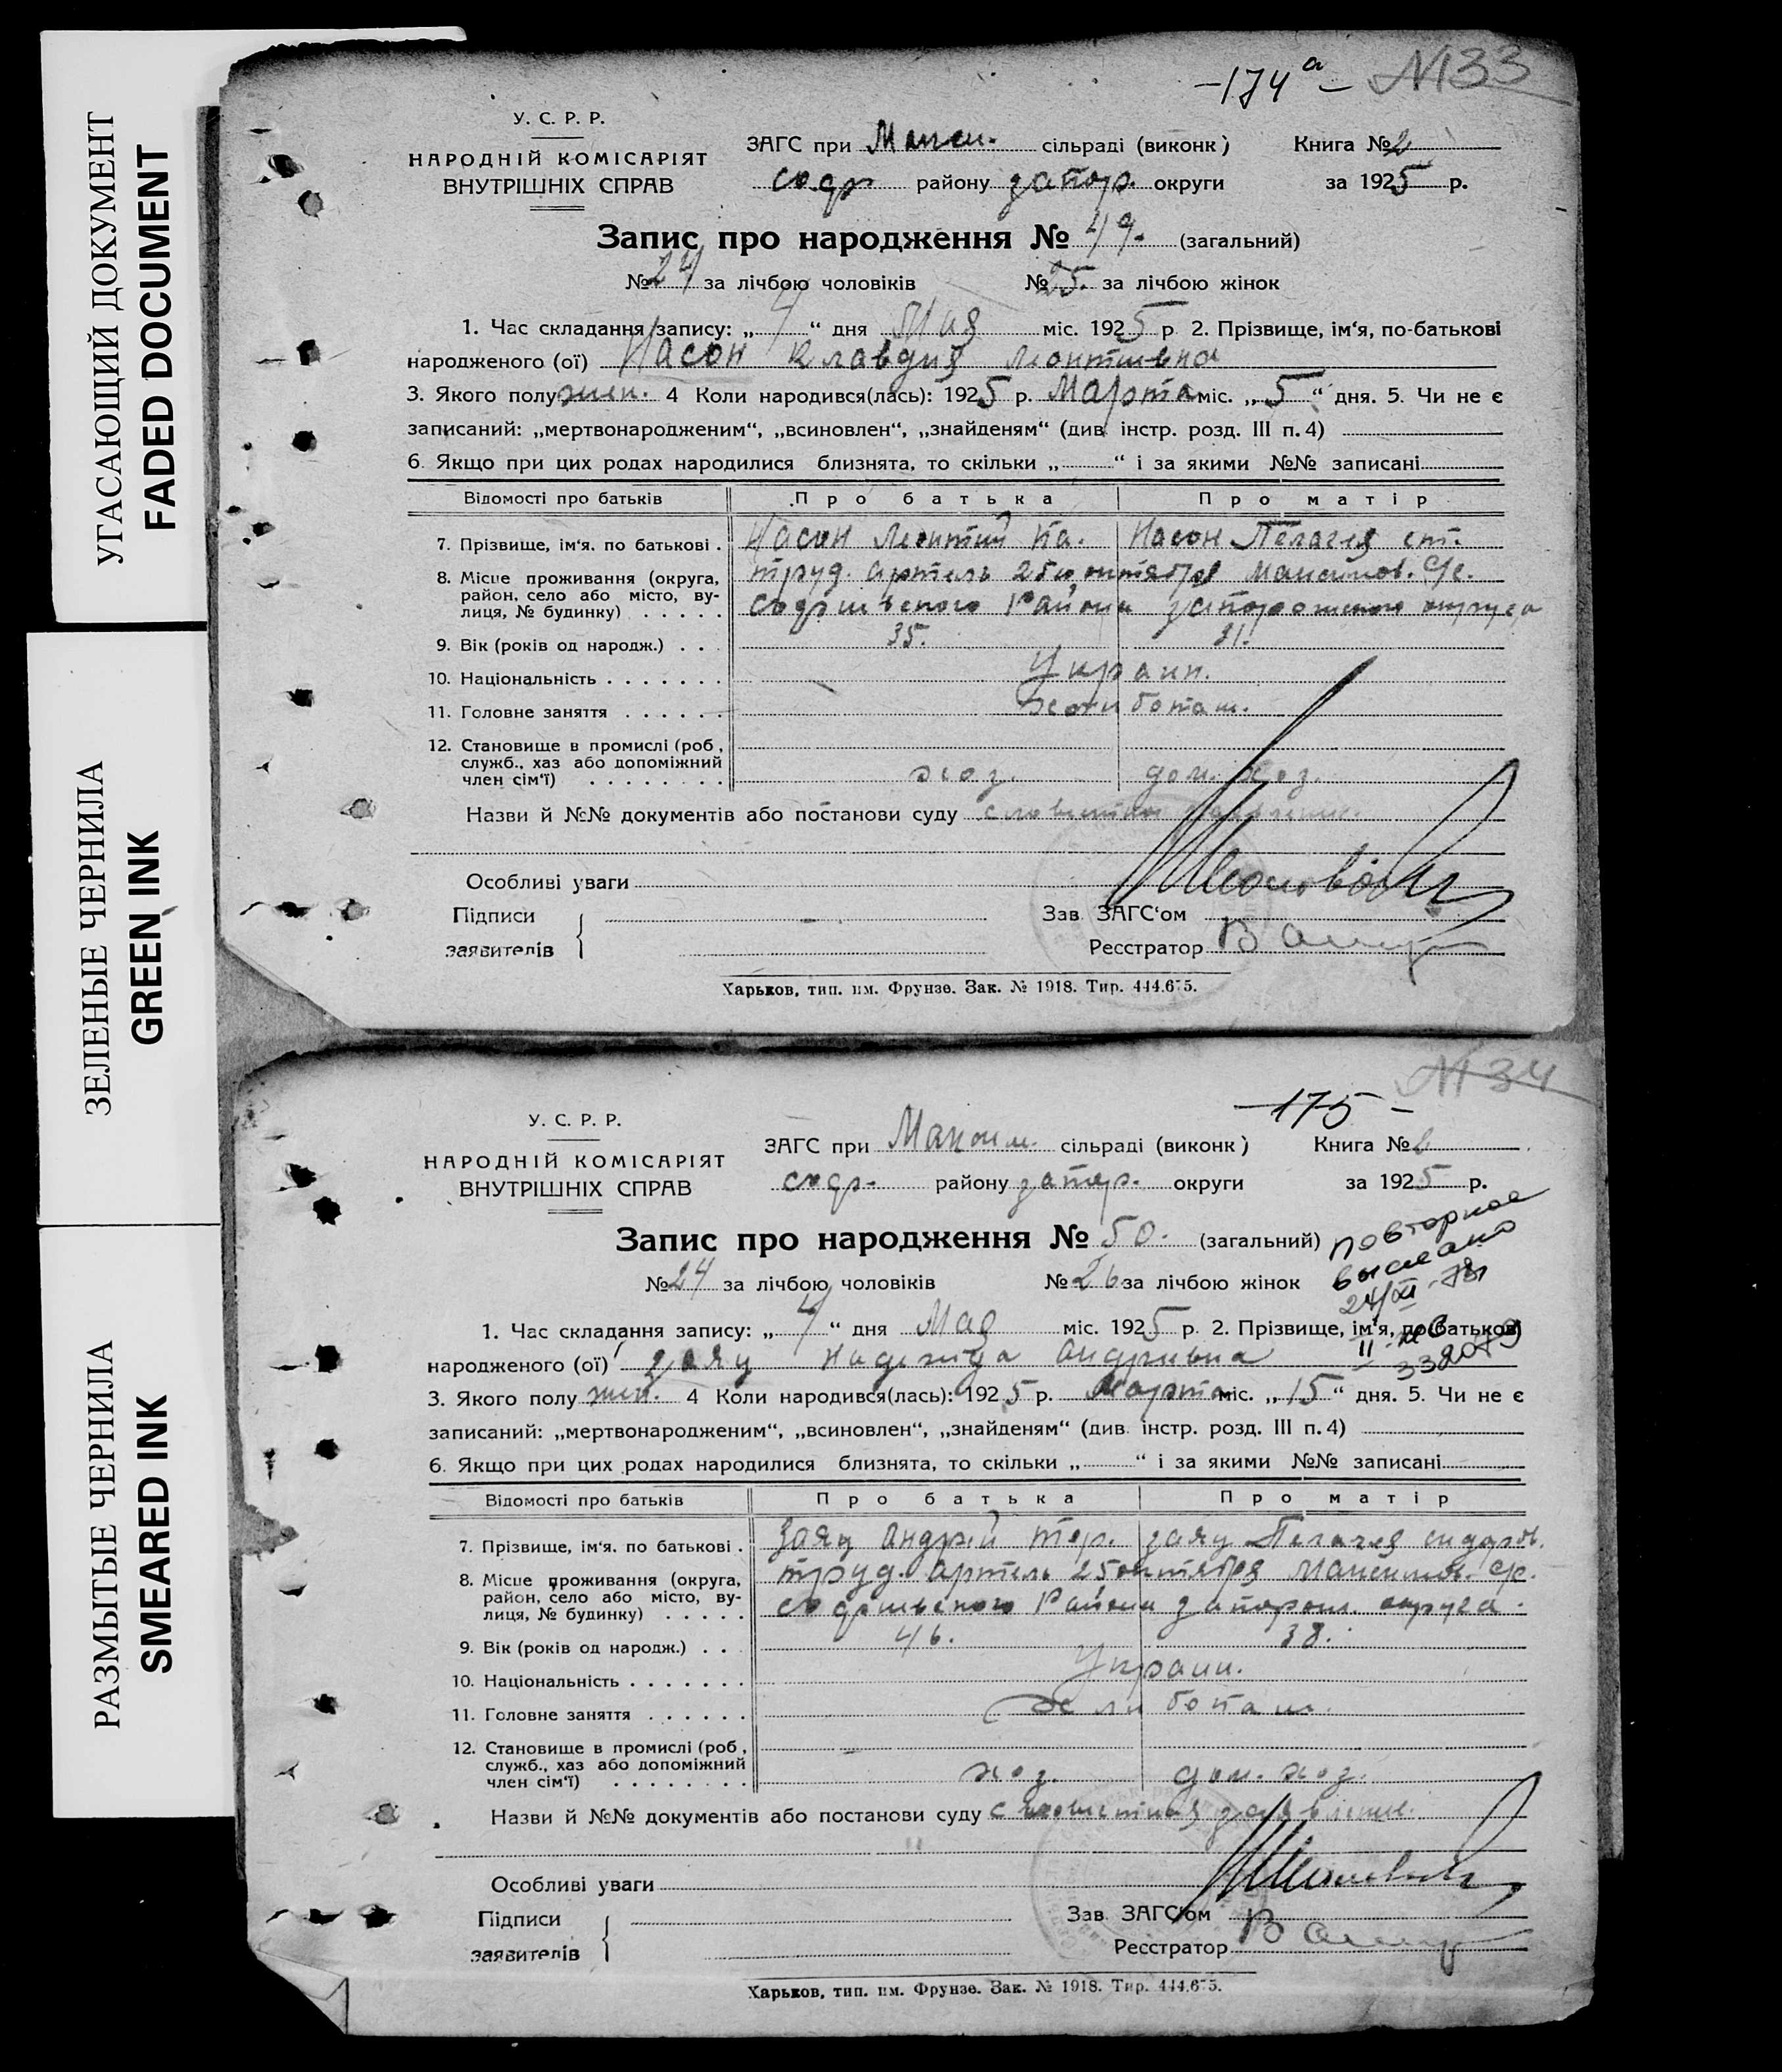 УГАСАЮЩИЙ ДОКУМЕНТ
FADED DOCUMENT
ЗЕЛЕНЫЕ ЧЕРНИЛА
GREEN INK
РАЗМЫТЫЕ ЧЕРНИЛА
SMEARED INK
-174 а- N33
У. С. Р. Р.
НАРОДНІЙ КОМІСАРІЯТ
ВНУТРІШНІХ СПРАВ
ЗАГС при сільраді (виконк) Книга № 2
софр району запор. округи за 1925 р.
Запис про народження № 49. (загальний)
№ 24 за лічбою чоловіків № 25. за лічбою жінок
1. Час складання запису: „ 4 “ дня Мая міс. 1925 р 2. Прізвище, ім‘я, по-батькові
народженого (ої) Насон Клавдия Леонтивна
3. Якого полу жен. 4 Коли народився(лась): 1925 р. Марта міс. „ 5 “ дня. 5. Чи не є
записаний: „мертвонародженим“, „всиновлен“, „знайденям“ (див. інстр. розд. III п. 4)
6. Якщо при цих родах народилися близнята, то скільки „ “ і за якими №№ записані
Відомості про батьків Про батька Про матір
7. Прізвище, ім‘я. по батькові . Насон Леонтий Насон Пелагея
8. Місце проживання (округа, труд. артель 25 октября
район, село або місто, ву- Района
лиця, № будинку)
9. Вік (років од народж.) . . . 35. 31.
10. Національність Украин.
11. Головне заняття
12. Становище в промислі (роб,
служб., хаз або допоміжний
член сім‘ї) хоз. дом. хоз.
Назви й №№ документів або постанови суду
Особливі уваги
Підписи Зав. ЗАГС‘ом
заявителів Реєстратор
Харьков, тип. им. Фрунзе. Зак. № 1918. Тир. 444.675.
-175- N34
У. С. Р. Р.
НАРОДНІЙ КОМІСАРІЯТ
ВНУТРІШНІХ СПРАВ
ЗАГС при Максим. сільраді (виконк) Книга № 2
софр. району запор. округи за 1925 р.
Запис про народження № 50. (загальний)
повторное
выслано
№ 24 за лічбою чоловіків № 26 за лічбою жінок
1. Час складання запису: „ 4 “ дня Мая міс. 1925 р 2. Прізвище, ім‘я, по-батькові
народженого (ої) Заяц Надежда Андриевна
3. Якого полу жен. 4 Коли народився(лась): 1925 р. Марта міс. „ 15 “ дня. 5. Чи не є
записаний: „мертвонародженим“, „всиновлен“, „знайденям“ (див. інстр. розд. III п. 4)
6. Якщо при цих родах народилися близнята, то скільки „ “ і за якими №№ записані
Відомості про батьків Про батька Про матір
7. Прізвище, ім‘я. по батькові . Заяц Андрей Заяц Пелагея
8. Місце проживання (округа, труд. артель 25 октября
район, село або місто, ву- Района округа
лиця, № будинку)
9. Вік (років од народж.) . . . 46. 38.
10. Національність Украин.
11. Головне заняття
12. Становище в промислі (роб,
служб., хаз або допоміжний
член сім‘ї) хоз. дом. хоз.
Назви й №№ документів або постанови суду
Особливі уваги
Підписи Зав. ЗАГС‘ом
заявителів Реєстратор
Харьков, тип. им. Фрунзе. Зак. № 1918. Тир. 444.675.